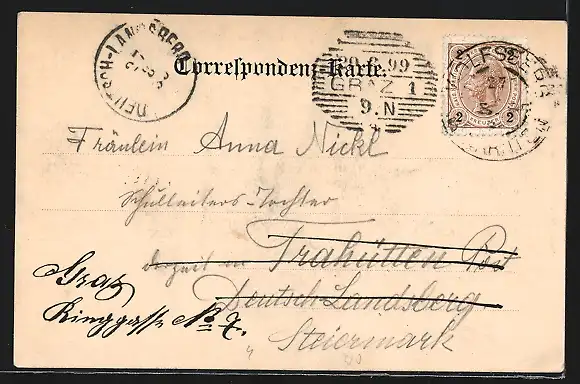 DEUTSCH-LANDSBERG
Correspondenz-Karte.
99
GRAZ 1
9. N
2 2
27
5
2 2
Fräulein Anna Nickl
Schulleiters-Tochter
derzeit in Trahütten Post
Deutsch Landsberg
Graz
Ringgasse No 7.
Steiermark